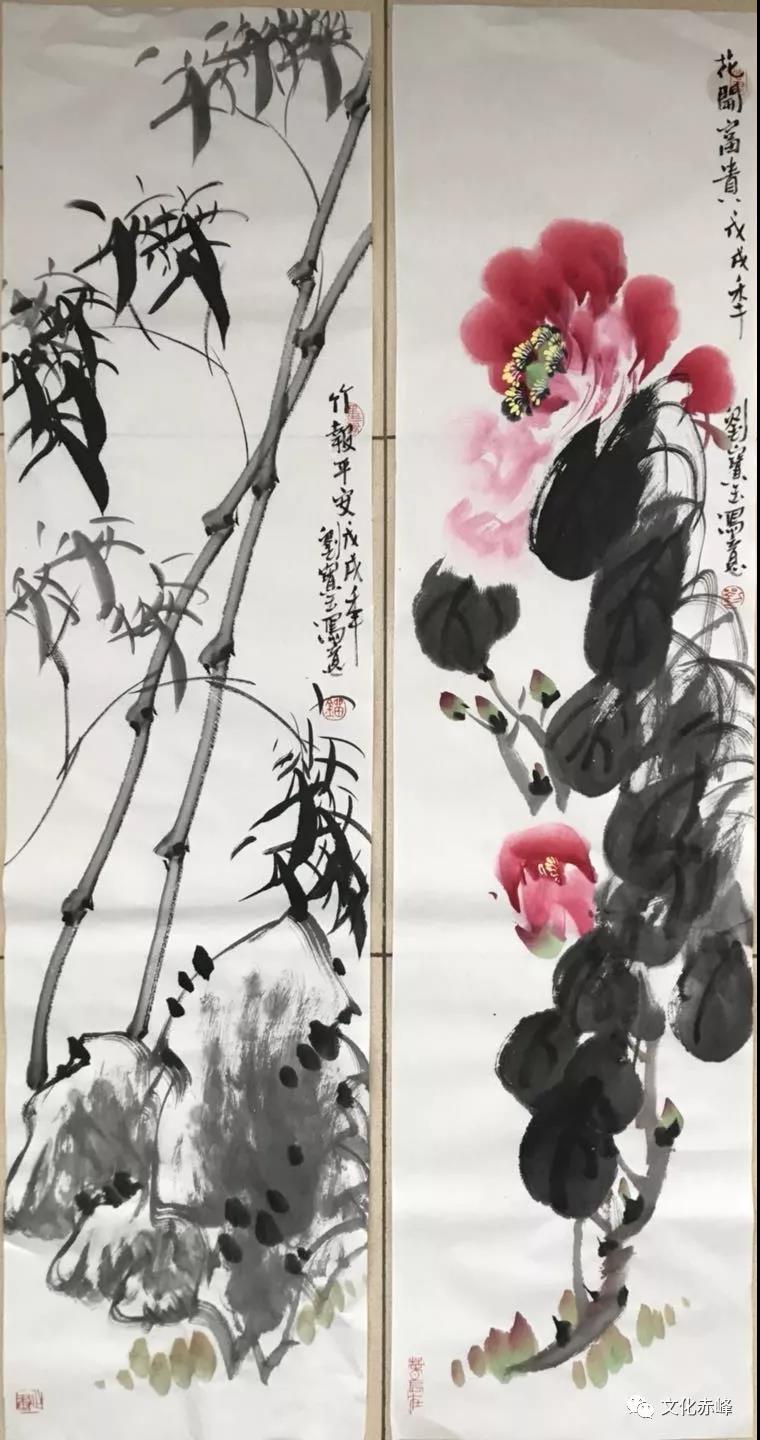 竹報平安戊戌年
劉寳玉寫意
花開富貴戊戌年
劉寳玉寫意
文化赤峰